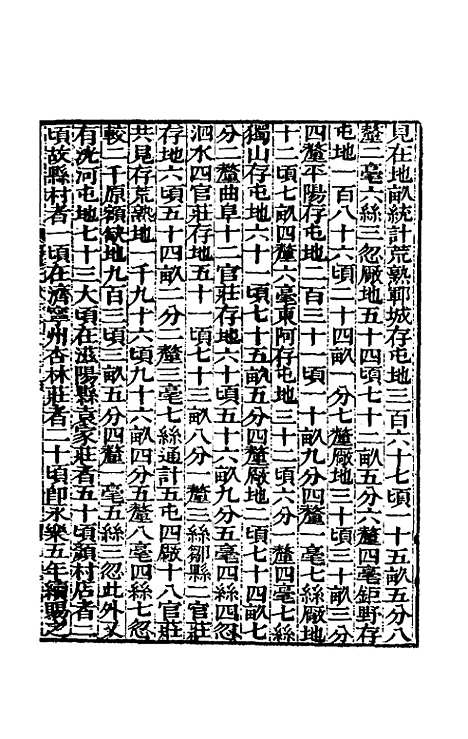 見在地畝統計荒熟鄆城存屯地三百六十七頃一十五畝五分八
釐二毫六絲三忽厰地五十四頃七十二畝五分六釐四毫鉅野存
屯地一百八十六頃二十四畝一分七釐厰地三十頃三十畝三分
四釐平陽存屯地二百三十一頃一十畝九分四釐一毫七絲厰地
十二頃七畝四釐六毫東阿存屯地三十二頃六分一釐四毫七絲
獨山存屯地六十一頃七十五畝四釐厰地二頃七十四畝七
分二釐曲阜十二官莊存地六十頃五十六畝九分五毫四絲四忽
泗水四官莊存地五十一頃七十三畝八分一釐三絲鄒縣二官莊
存地六頃五十四畝二分二釐三毫七絲通計五屯四厰十八官莊
共見存荒熟地一千九十六頃九十六畝四分五釐八毫四絲七忽
較二千原額缺地九百三頃三畝五分四釐一毫五絲三忽此外又
有洸河屯地七十三大頃在滋陽縣袁家莊者五十頃顏村店者二
頃故縣村者一頃在濟寧州杏林莊者二十頃卽永樂五年續賜之